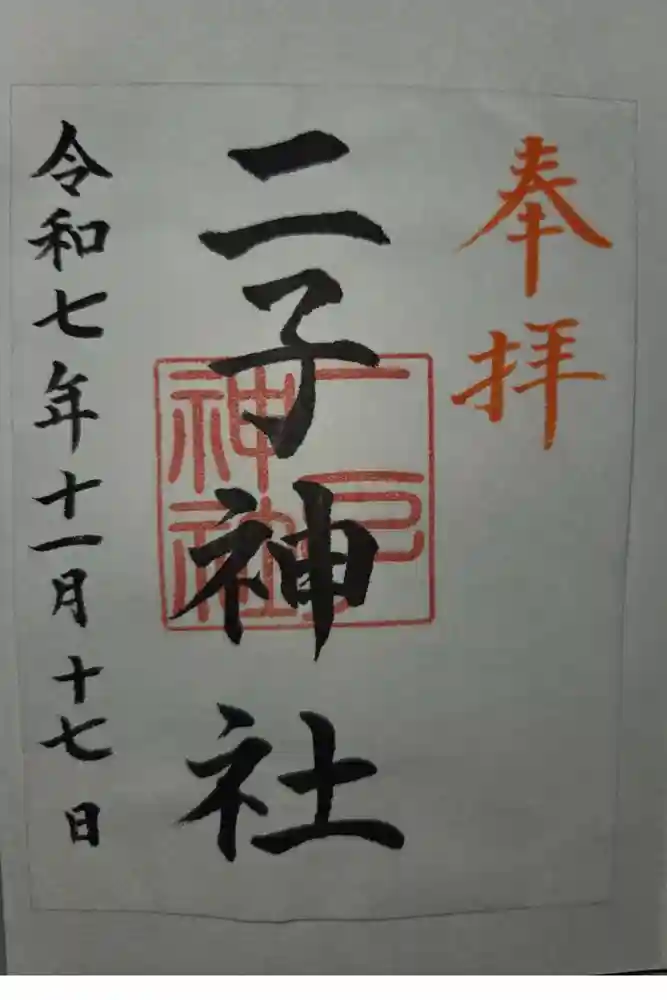 奉拝
二子神社
令和七年十一月十七日